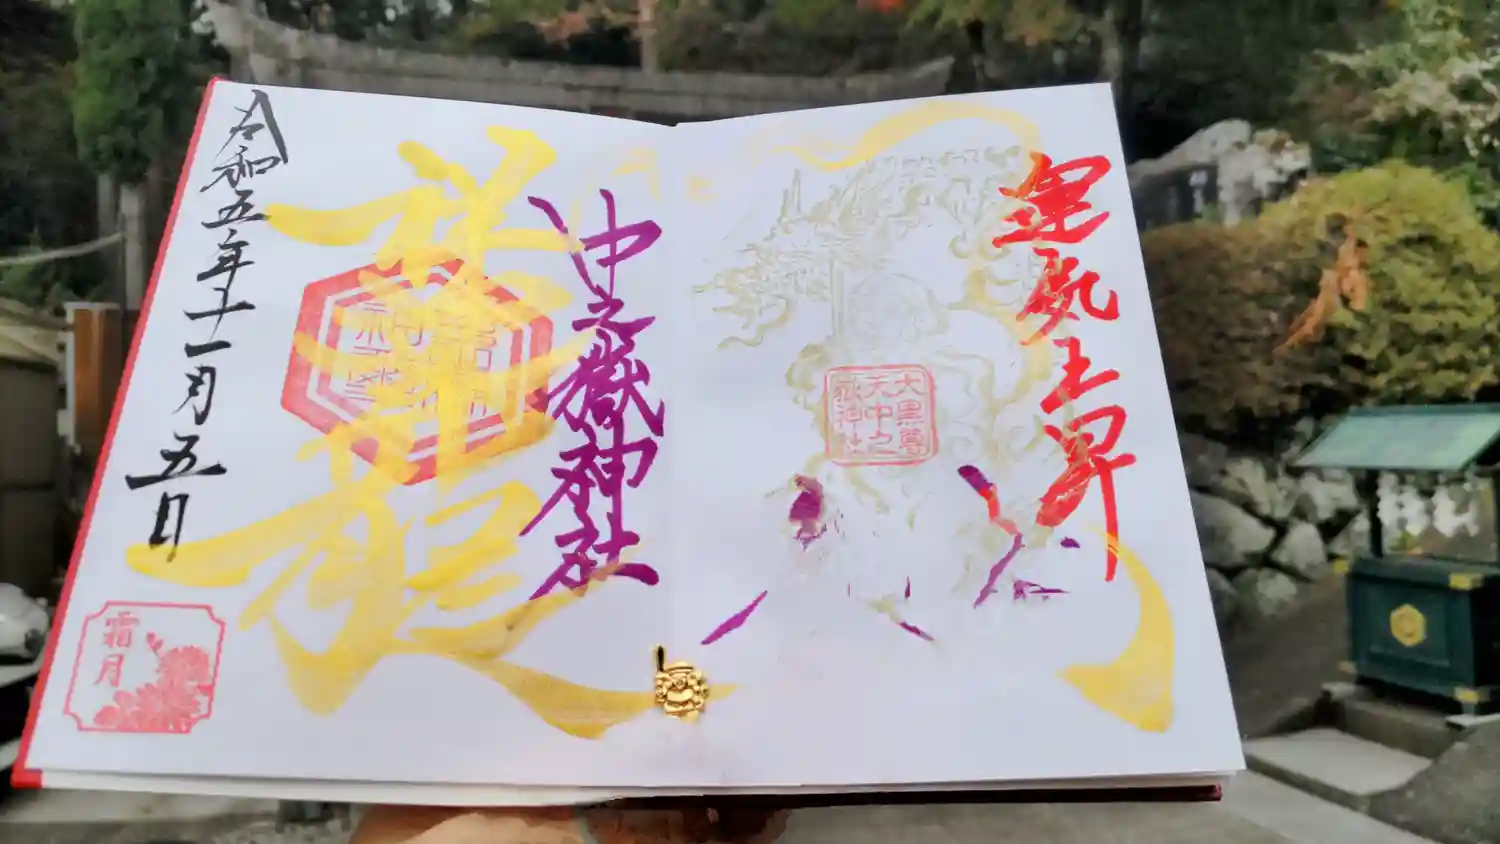 運気上昇
大黒尊
天中之
嶽神社
中之嶽神社
令和五年十一月五日
霜月